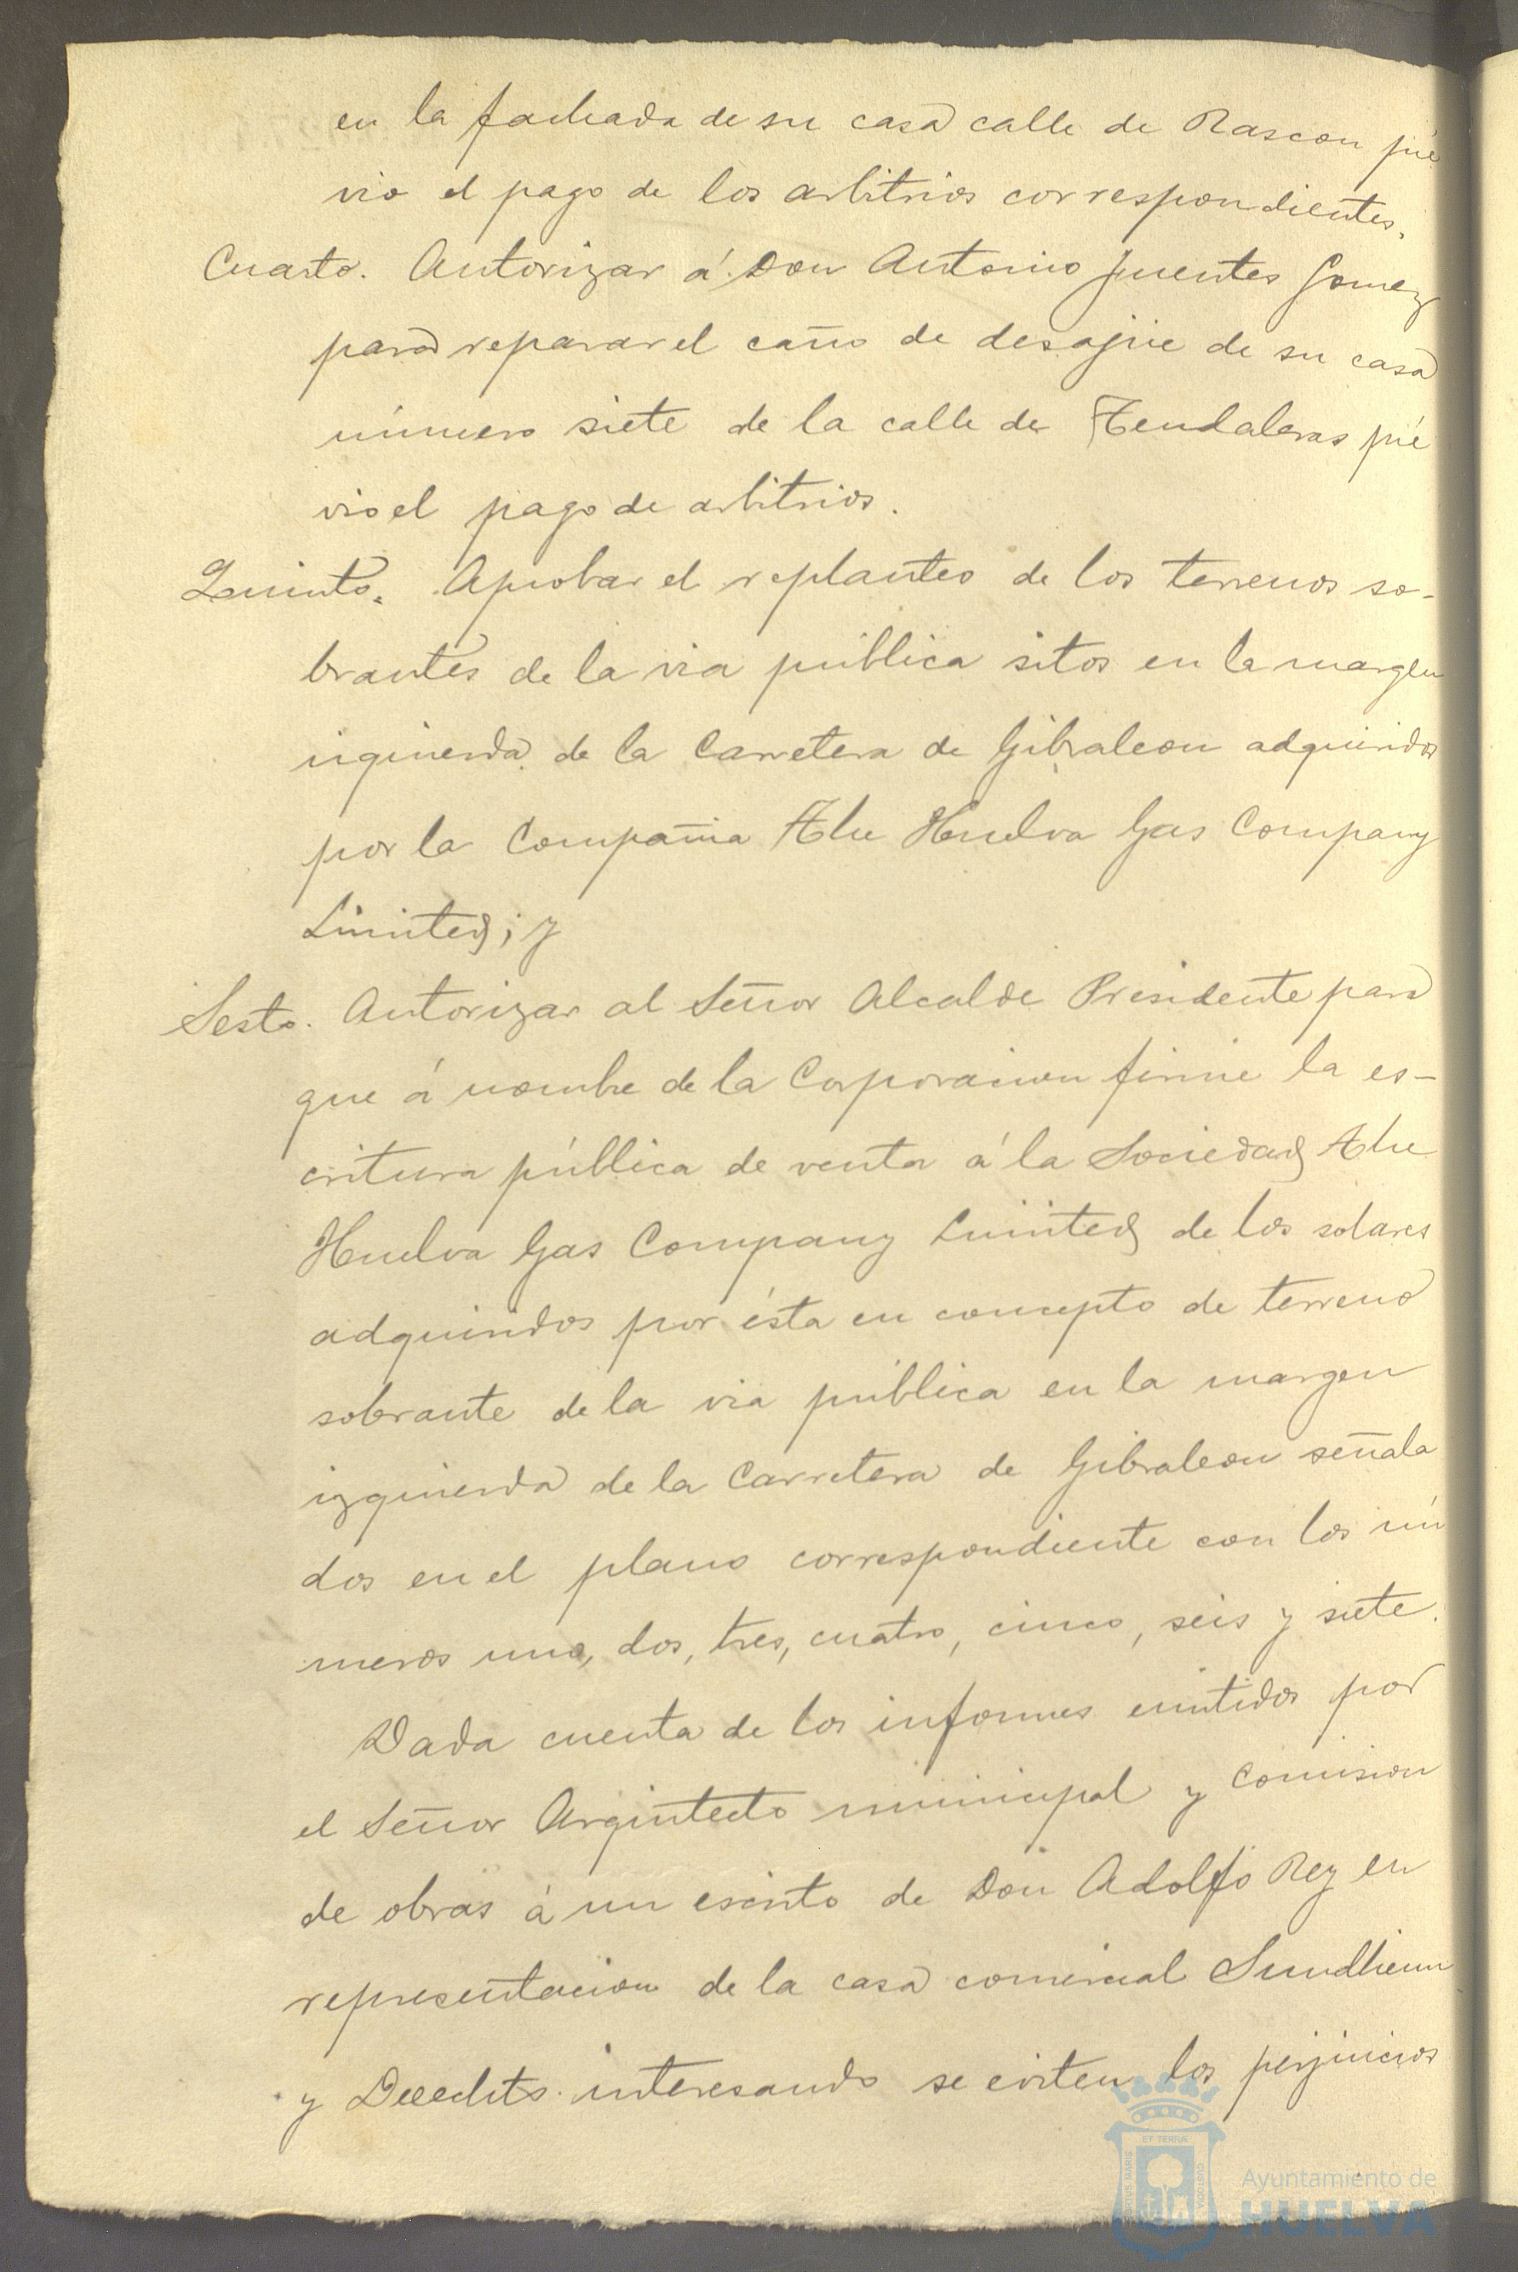 en la fachada de su casa calle de Rascon pré
vio el pago de los arbitrios correspondientes.
Cuarto. Autorizar á Don Antonio Fuentes Gomez
para reparar el caño de desagüe de su casa
número siete de la calle de Tendaleras pré
vio el pago de arbitrios.
Quinto. Aprobar el replanteo de los terrenos so-
brantes de la via pública sitos en la margen
izquierda de la Carretera de Gibraleon adquiridos
por la Compañia The Huelva Gas Company
Limited; y
Sesto. Autorizar al Señor Alcalde Presidente para
que á nombre de la Corporacion firme la es-
critura pública de venta á la Sociedad The
Huelva Gas Company Limited de los solares
adquiridos por ésta en concepto de terreno
sobrante de la via pública en la margen
izquierda de la Carretera de Gibraleon señala
dos en el plano correspondiente con los nú
meros uno, dos, tres, cuatro, cinco, seis y siete.
Dada cuenta de los informes emitidos por
el Señor Arquitecto municipal y Comision
de obras á un escrito de Don Adolfo Rey en
representacion de la casa comercial Sundheim
y Doetsch interesando se eviten los perjuicios
Ayuntamiento de
HUELVA